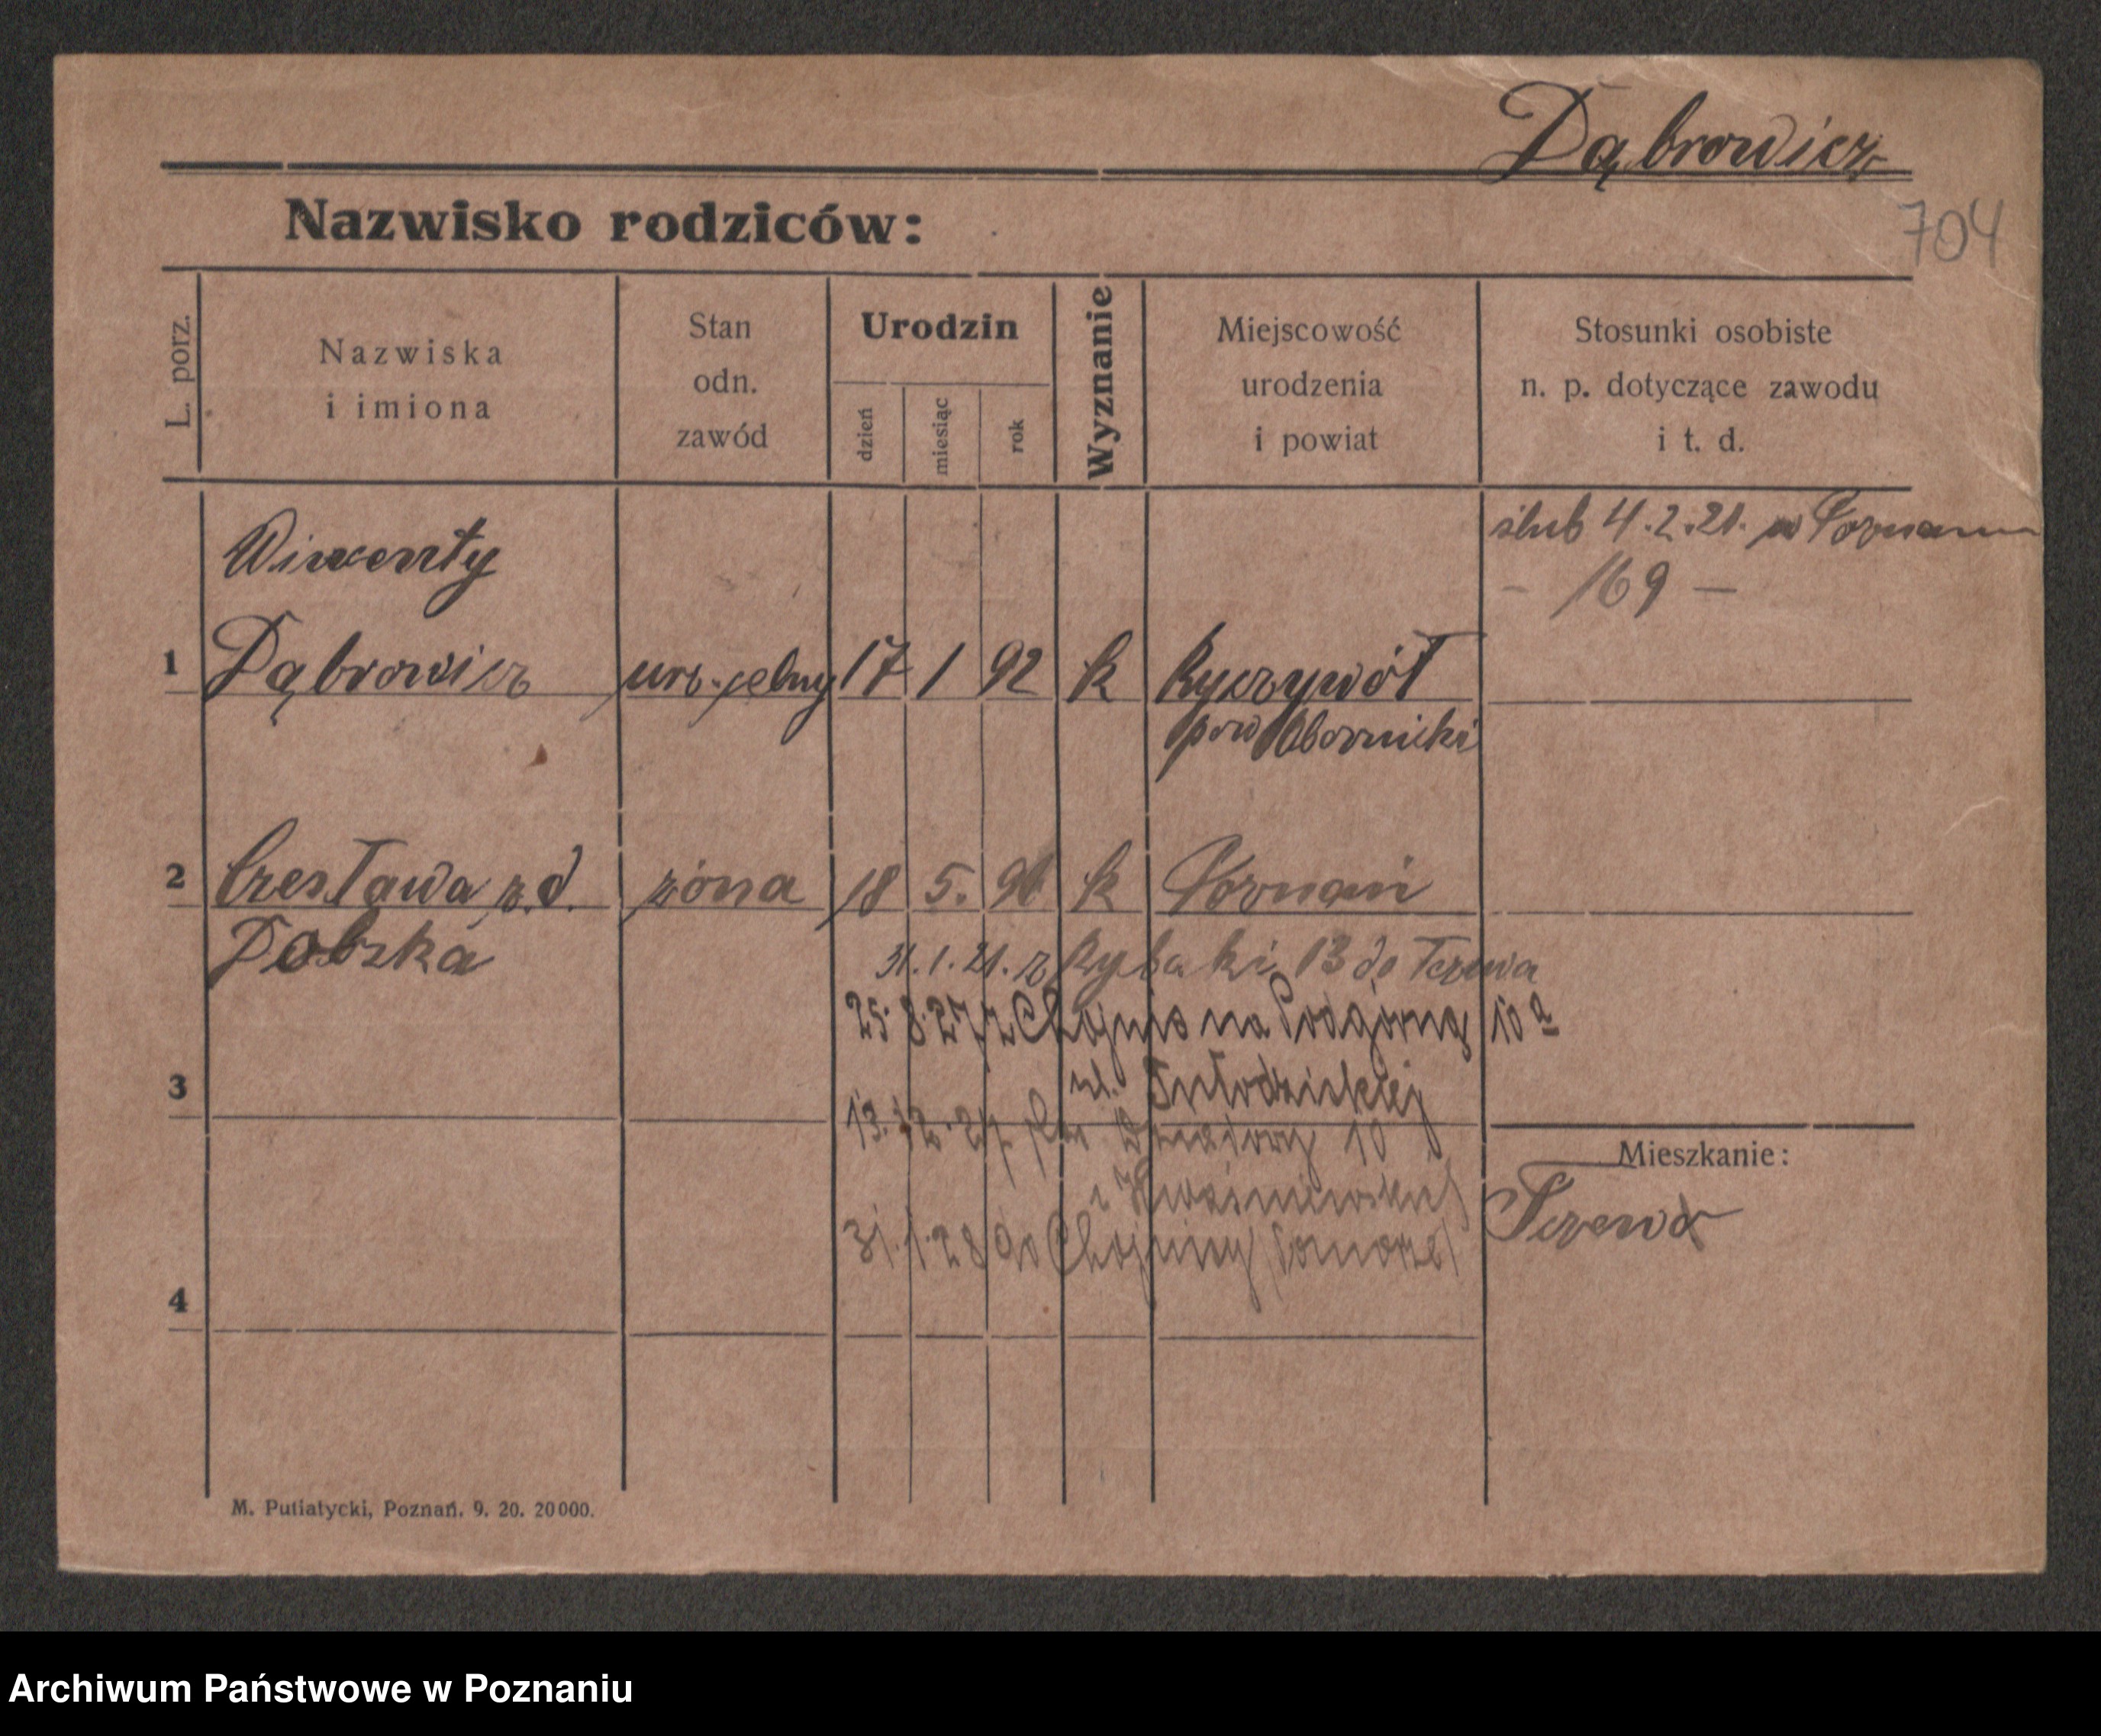 Dąbrowicz
704
Nazwisko rodziców:
L. porz.
Nazwiska
i imiona
Stan
odn.
zawód
Urodzin
dzień
miesiąc
rok
Wyznanie
Miejscowość
urodzenia
i powiat
Stosunki osobiste
n. p. dotyczące zawodu
i t. d.
ślub 4.2.21. w Poznaniu
- 169 -
Wincenty
1 Dąbrowicz urz. celny 17 1 92 k Ryczywół
pow Obornicki
2 Czesława z. d. żona 18 5. 96 k Poznań
Dobska
31.1.21. z Rybaki 13 do Tczewa
25.8.27 z Chojnic na Podgórną 10a
u.
3
13.12.27 10
Mieszkanie:
i
Tczewo
31.1.28 do Chojnic (Pomorze)
4
M. Putiatycki, Poznań. 9. 20. 20000.
Archiwum Państwowe w Poznaniu